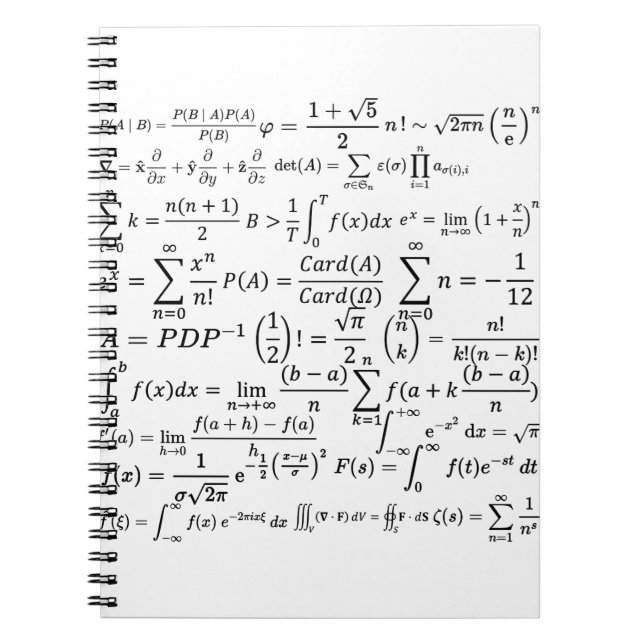 P(A | B) = P(B | A)P(A) / P(B)   φ = (1 + √5) / 2   n! ~ √(2πn) (n/e)^n
∇ = x̂ ∂/∂x + ŷ ∂/∂y + ẑ ∂/∂z   det(A) = ∑_{σ∈𝔖_n} ε(σ) ∏_{i=1}^{n} a_{σ(i),i}
∑^{n} k = n(n + 1) / 2   B > 1/T ∫_0^T f(x)dx   e^x = lim_{n→∞} (1 + x/n)^n
e^x = ∑_{n=0}^{∞} x^n / n!   P(A) = Card(A) / Card(Ω)   ∑_{n=0}^{∞} n = −1/12
A = PDP^{−1}   (1/2)! = √π / 2   (n k) = n! / k!(n − k)!
∫_a^b f(x)dx = lim_{n→+∞} (b − a)/n ∑_{k=1}^{n} f(a + k (b − a)/n)
f′(a) = lim_{h→0} (f(a + h) − f(a)) / h   ∫_{−∞}^{+∞} e^{−x^2} dx = √π
f(x) = 1 / (σ√(2π)) e^{−1/2 ((x−μ)/σ)^2}   F(s) = ∫_0^∞ f(t)e^{−st} dt
f̂(ξ) = ∫_{−∞}^{∞} f(x) e^{−2πixξ} dx   ∭_V (∇ · F) dV = ∯_S F · dS   ζ(s) = ∑_{n=1}^{∞} 1/n^s